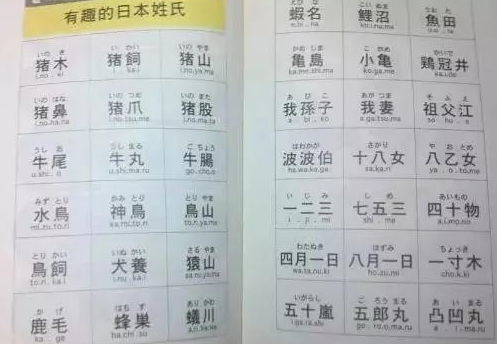 有趣的日本姓氏
いのき いかい いのやま
猪木 猪飼 猪山
i.no.ki i.kai i.no.ya.ma
いのはな いのつめ いのまた
猪鼻 猪爪 猪股
i.no.ha.na i.no.tsu.me i.no.ma.ta
うしお うしまる ごちょう
牛尾 牛丸 牛腸
u.shi.o u.shi.ma.ru go.cho.u
みずとり かみとり とりやま
水鳥 神鳥 鳥山
mi.zu.to.ri ka.mi.to.ri to.ri.ya.ma
とりかい いぬかい さるやま
鳥飼 犬養 猿山
to.ri.ka.i i.nu.ka.i sa.ru.ya.ma
かげ はちす ありかわ
鹿毛 蜂巣 蟻川
ka.ge ha.chi.su a.ri.ka.wa
えびな こいぬま うおた
蝦名 鯉沼 魚田
かめしま こがめ かいで
亀島 小亀 鶏冠井
ka.me.shi.ma ko.ga.me ka.i.de
あびこ あがつま そふえ
我孫子 我妻 祖父江
a.bi.ko a.ga.tsu.ma so.fu.e
はわかが さかり やおとめ
波波伯 十八女 八乙女
ha.wa.ka.ga sa.ka.ri ya.o.to.me
いじみ しめ あいもの
一二三 七五三 四十物
i.ji.mi shi.me a.i.mo.no
わたぬき ほずみ ちょっき
四月一日 八月一日 一寸木
wa.ta.nu.ki ho.zu.mi cho.k.ki
いがらし ごろうまる あいまる
五十嵐 五郎丸 凸凹丸
i.ga.ra.shi go.ro.u.ma.ru a.i.ma.ru